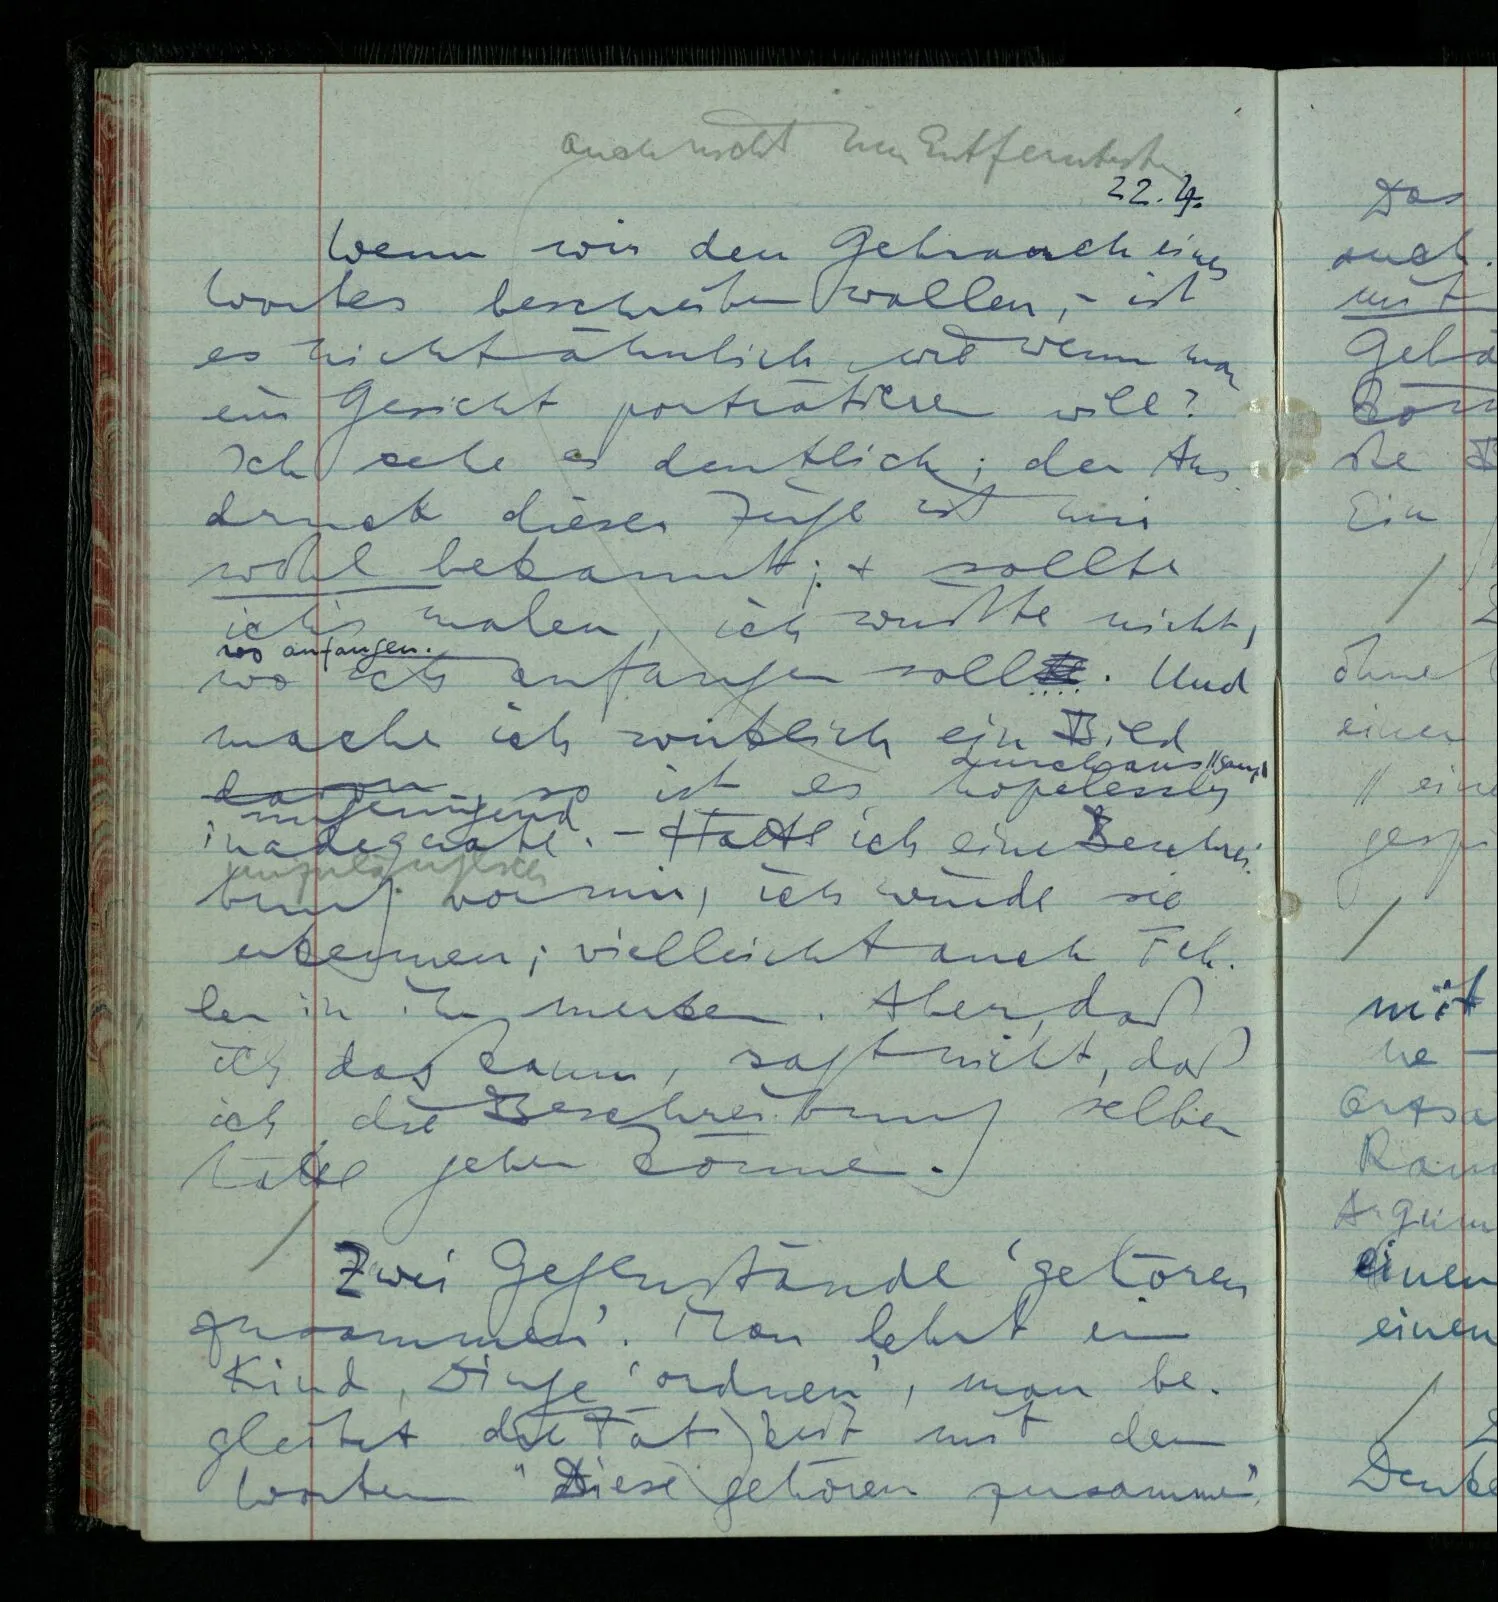 auch nicht im Entferntesten
22.4.
Wenn wir den Gebrauch eines
Wortes beschreiben wollen, – ist
es nicht ähnlich, wie wenn man
ein Gesicht porträtieren will?
Ich sehe es deutlich; der Aus-
druck dieser Züge ist mir
wohl bekannt; + sollte
ich's malen, ich wüßte nicht,
wo anfangen.
wo ich anfangen soll. Und
mache ich wirklich ein Bild
durchaus // ganz
davon, so ist es hopelessly
ungenügend
inadequate. – Hätte ich eine Beschrei-
unzulänglich
bung vor mir, ich würde sie
erkennen; vielleicht auch Feh-
ler in ihr merken. Aber, daß
ich das kann, sagt nicht, daß
ich die Beschreibung selber
hätte geben können.
/
Zwei Gegenstände 'gehören
zusammen'. Man lehrt ein
Kind, Dinge 'ordnen', man be-
gleitet die Tätigkeit mit den
Worten "Diese gehören zusammen".
Das
auch.
mit
die
Ein
/
ohne
einen
// eine
/
mit
ne –
einen
einen
/